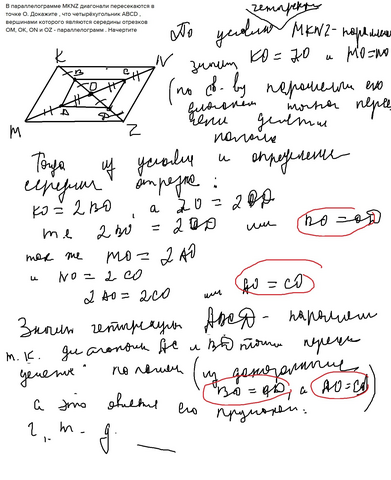 В параллелограмме MKNZ диагонали пересекаются в
точке О. Докажите , что четырёхугольник ABCD ,
вершинами которого являются середины отрезков
ОМ, ОК, ОN и OZ - параллелограмм . Начертите
По условию MKNZ - паралл
значит KO = ZO и MO = NO
(по св-ву параллел его
диагонали точкой пересе
чения делятся
пополам
K N
B C
O
A D
M Z
Тогда из условия и определения
середины отрезка :
KO = 2BO , а ZO = 2OD
т.е 2BO = 2OD или BO = OD
так же MO = 2AO
и NO = 2CO
2AO = 2CO или AO = CO
Значит четырехуг ABCD - паралл
т.к. диагонали AC и BD точки перес
делит пополам (из доказанного
BO = OD, а AO = CO)
а это является его признаком.
ч.т.д.